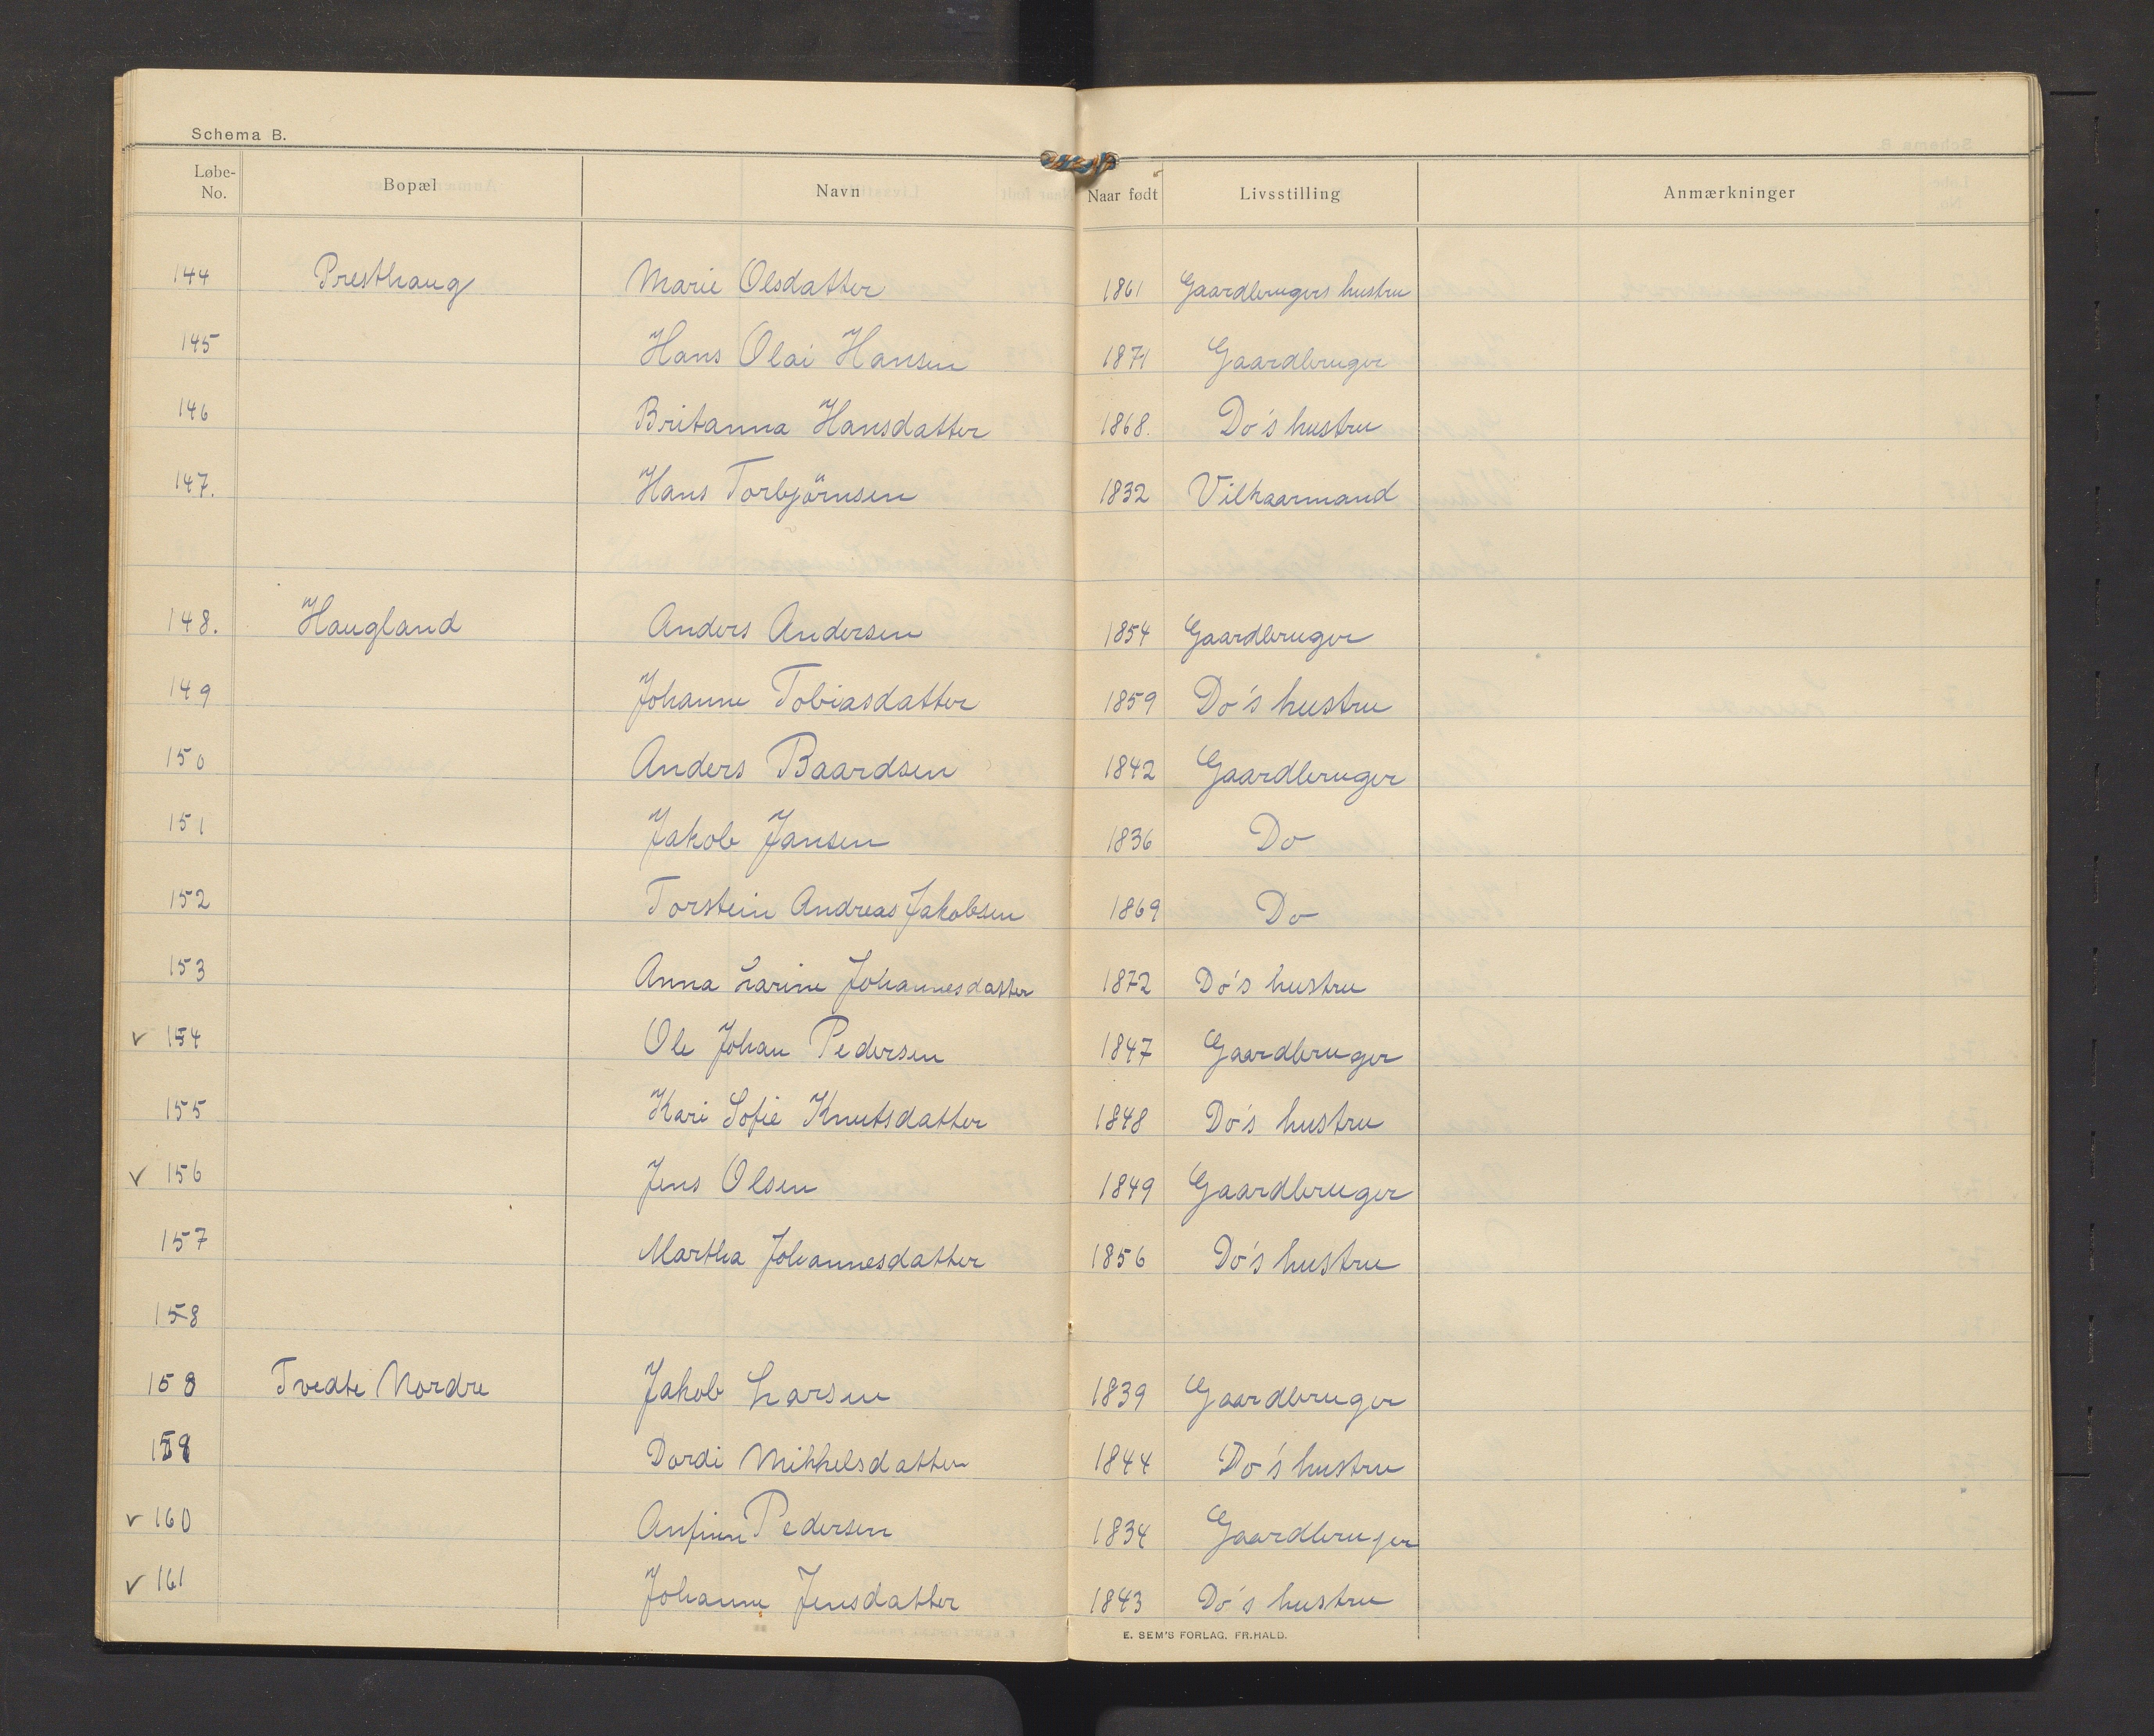 Schema B.
Løbe-No. Bopæl Navn Naar født Livsstilling Anmærkninger
144 Presthaug Marie Olsdatter 1861 Gaardbrugers hustru
145 Hans Olai Hansen 1871 Gaardbruger
146 Britanna Hansdatter 1868. Do's hustru
147. Hans Torbjörnsen 1832 Vilkaarmand
148. Haugland Anders Andersen 1854 Gaardbruger
149 Johanne Tobiasdatter 1859 Do's hustru
150 Anders Baardsen 1842 Gaardbruger
151 Jakob Jansen 1836 Do
152 Torstein Andreas Jakobsen 1869 Do
153 Anna Larine Johannesdatter 1872 Do's hustru
v 154 Ole Johan Pedersen 1847 Gaardbruger
155 Kari Sofie Knutsdatter 1848 Do's hustru
v 156 Jens Olsen 1849 Gaardbruger
157 Martha Johannesdatter 1856 Do's hustru
158
158 Tvedte Nordre Jakob Larsen 1839 Gaardbruger
159 Dordi Mikkelsdatter 1844 Do's hustru
v 160 Anfinn Pedersen 1834 Gaardbruger
v 161 Johanne Jensdatter 1843 Do's hustru
E. SEM'S FORLAG. FR.HALD.